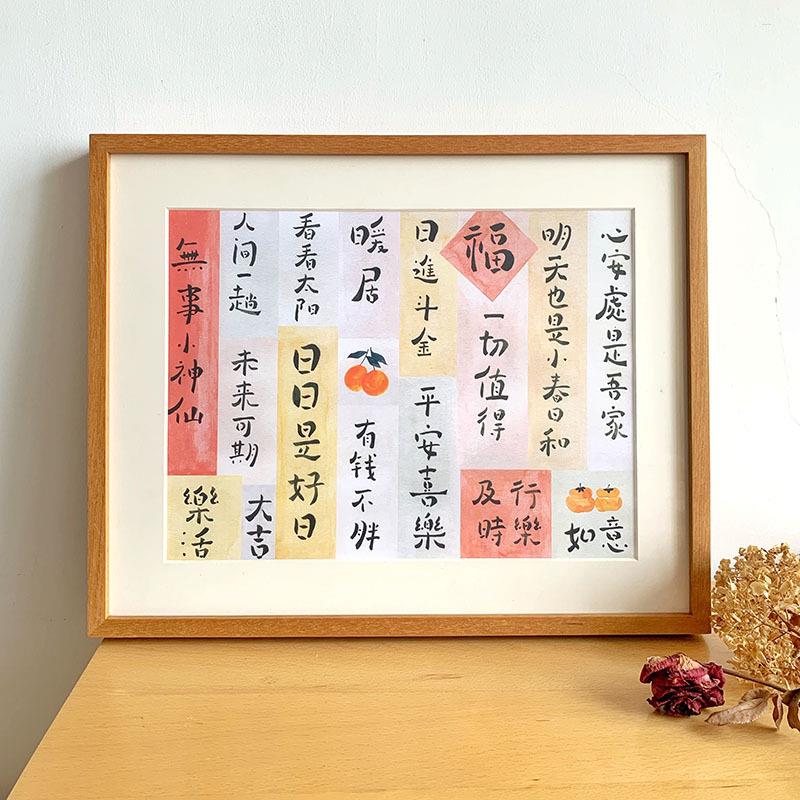 心安處是吾家
明天也是小春日和
福
一切值得
日進斗金
暖居
看看太阳
人间一趟
無事小神仙
未来可期
日日是好日
有钱不胖
平安喜樂
行樂
及時
如意
大吉
樂活